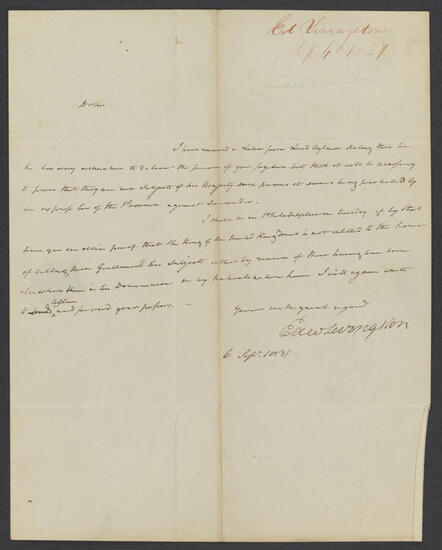 Ed Livingston
Sep 6 1831
Dr Sir
I have received a Letter from Lord Aylmer stating that he
he has every inclination to deliver the persons of your fugitives but that it will be necessary
to prove that they are not subjects of his Majesty such persons it seems being precluded by
an express law of the Province against surrender.
I shall be in Philadelphia on tuesday if by that
time you can obtain proof that the King of the United Kingdoms is not entitled to the honor
of calling these Gentlemen his subjects either by reason of their having been born
elsewhere than in his Dominions or by Naturalization here I will again write
to Lord Aylmer and forward your proofs. —
Yours with great regard
Edw Livingston
6. Sept. 1831